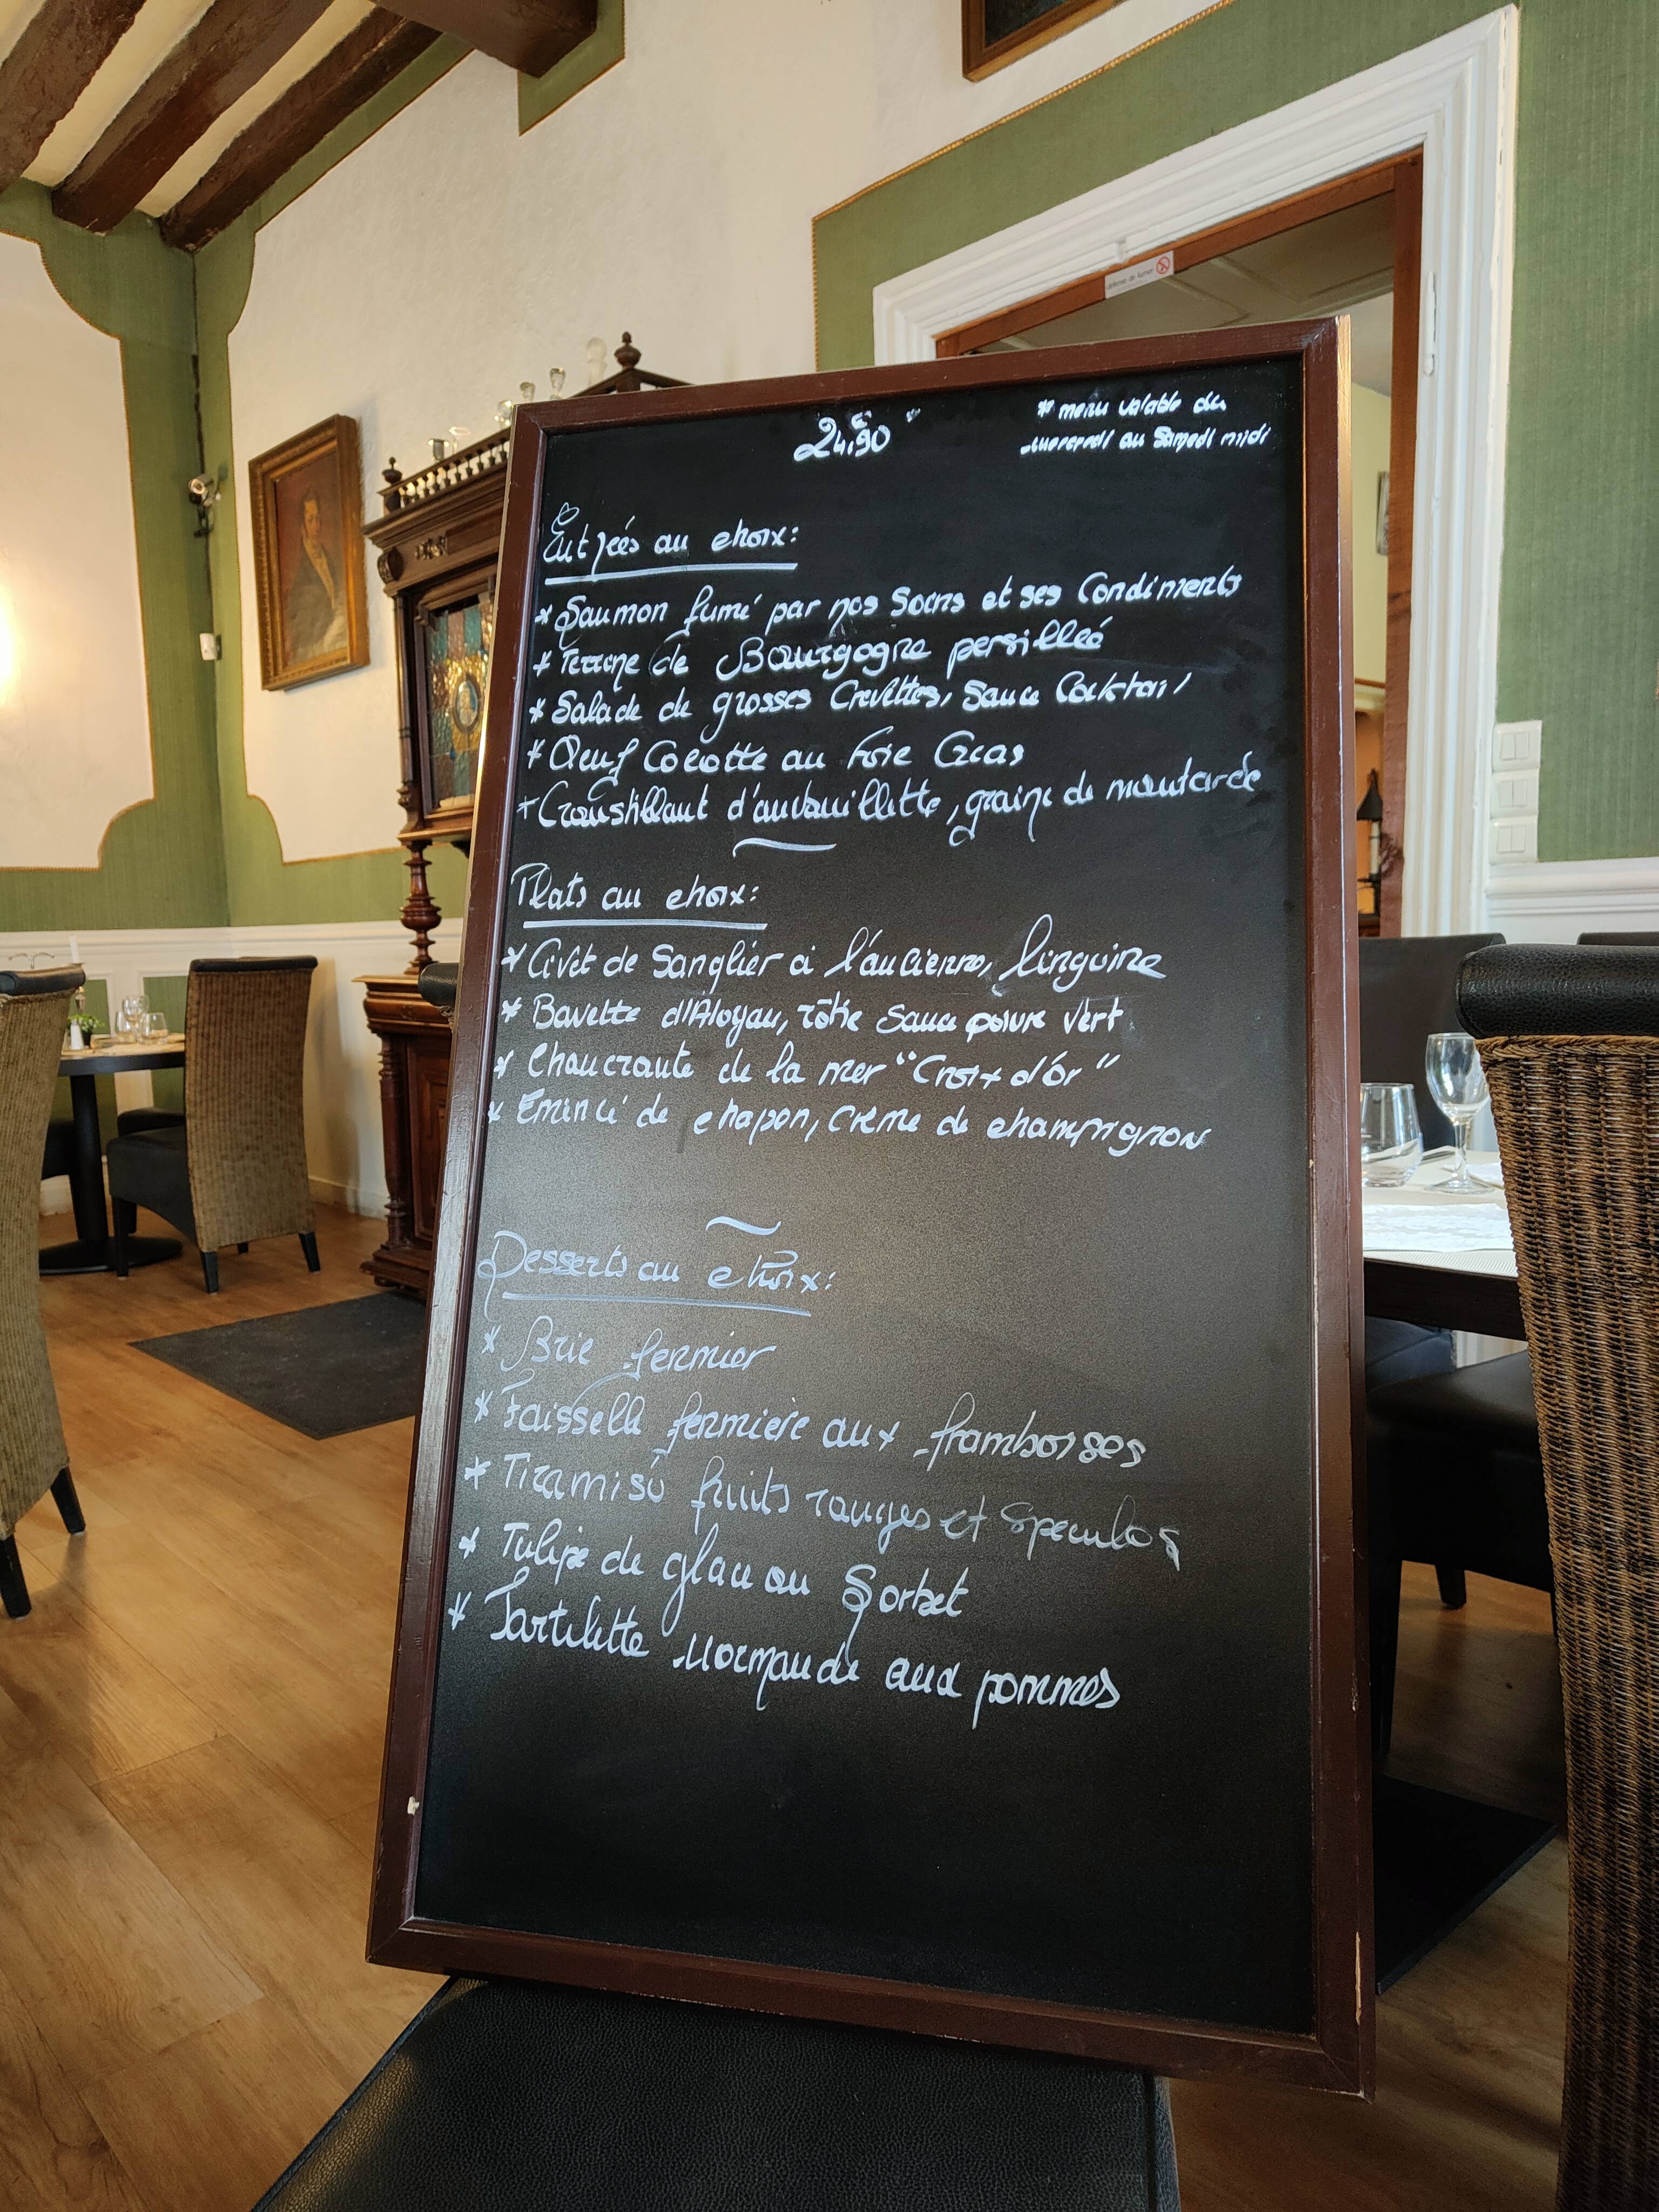 défense de fumer
24,90€
* menu valable du
mercredi au Samedi midi
Entrées au choix:
* Saumon fumé par nos Soins et ses Condiments
* Terrine de Bourgogne persillée
* Salade de grosses Crevettes, Sauce Cocktail
* Oeuf Cocotte au Foie Gras
* Croustillant d'andouillette, graine de moutarde
Plats au choix:
* Civet de Sanglier à l'ancienne, linguine
* Bavette d'Aloyau, rôtie Sauce poivre vert
* Choucroute de la mer "Croix d'or"
* Emincé de chapon, Crème de champignon
Desserts au choix:
* Brie fermier
* Faisselle fermière aux framboises
* Tiramisù fruits rouges et Speculos
* Tulipe de glace ou Sorbet
* Tartelette Normande aux pommes